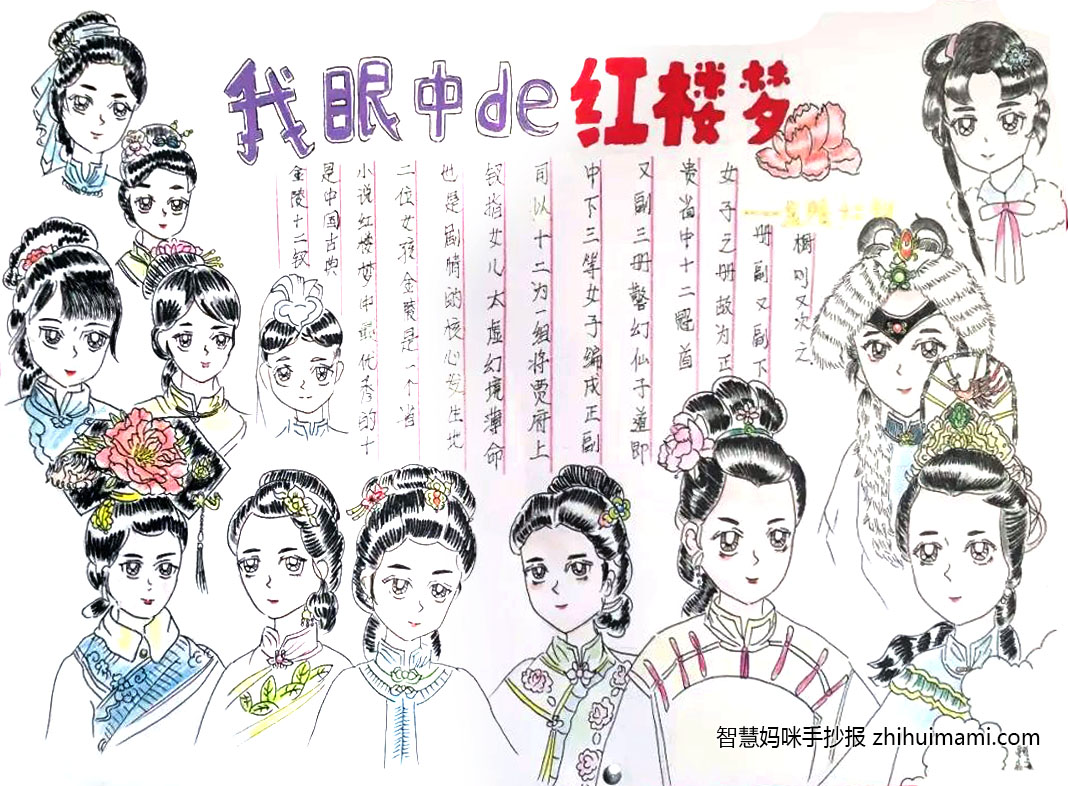 我眼中de红楼梦
金陵十二钗
是中国古典
小说红楼梦中最优秀的十
二位女孩金陵是一个省
也是剧情的核心发生地
钗指女儿太虚幻境薄命
司以十二为一组将贾府上
中下三等女子编成正副
又副三册警幻仙子道即
贵省中十二冠首
女子之册故为正
册副又副下
橱则又次之
智慧妈咪手抄报 zhihuimami.com